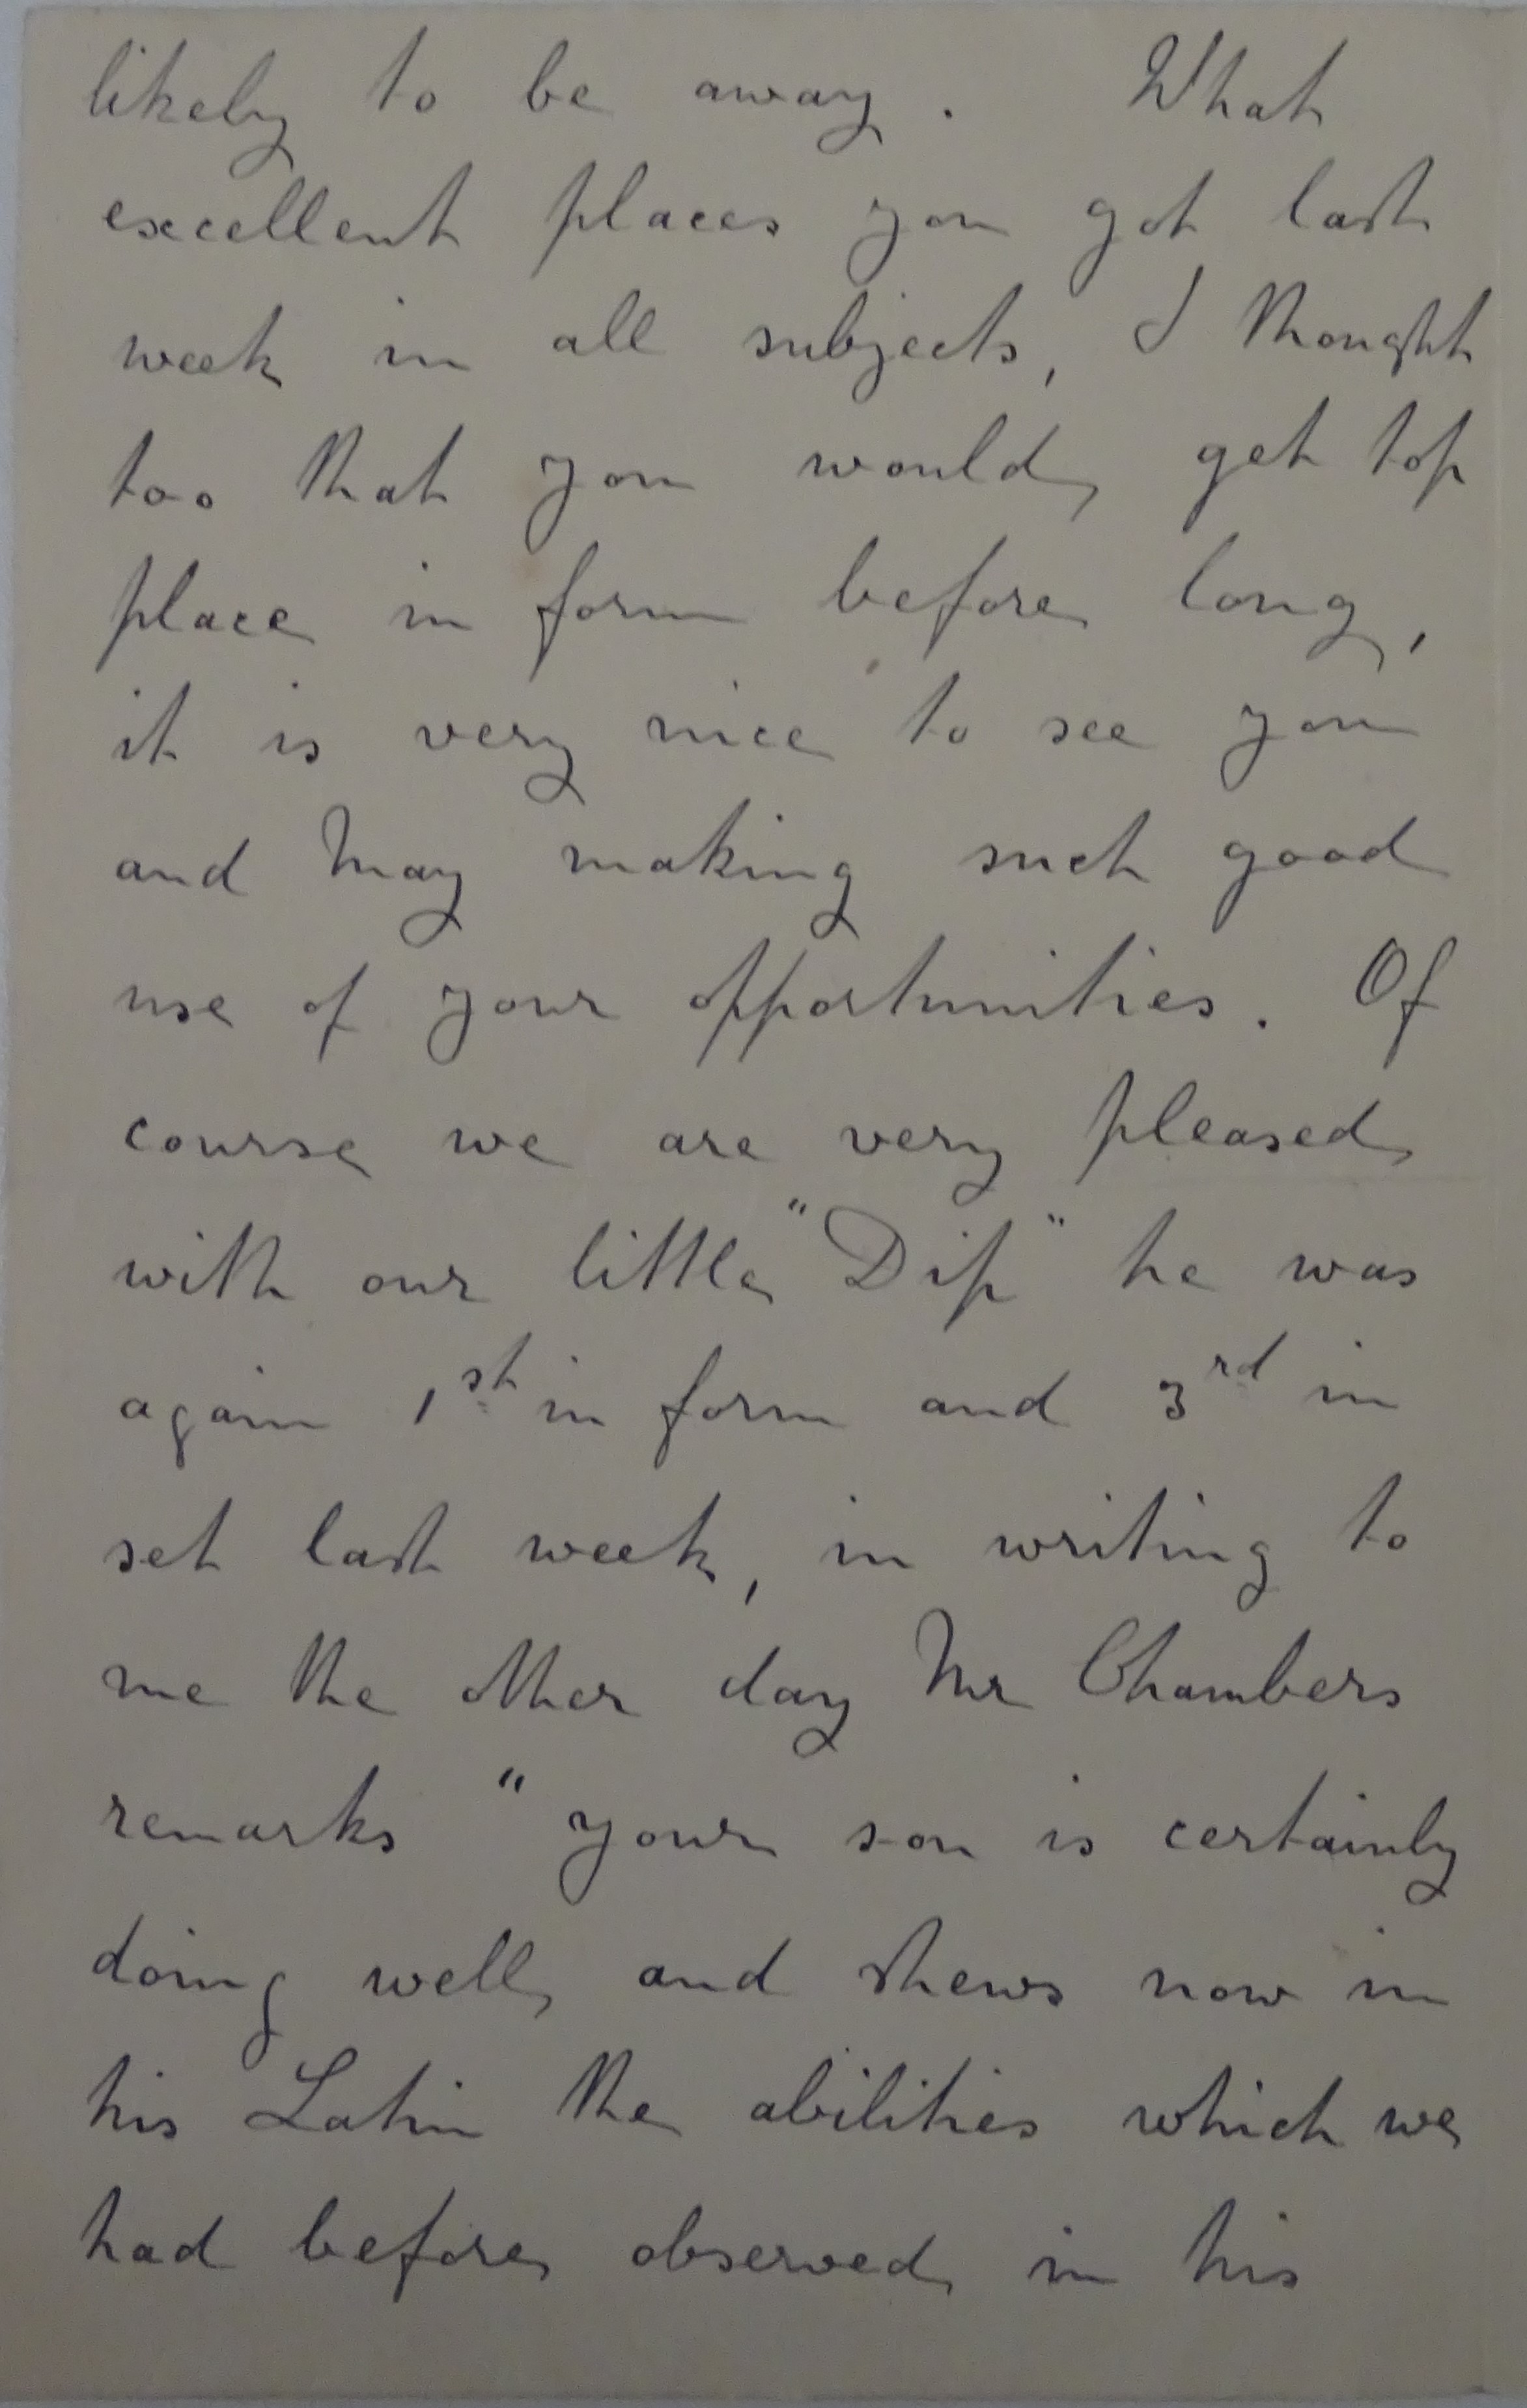 likely to be away. What
excellent places you got last
week in all subjects, I thought
too that you would get top
place in form before long,
it is very nice to see you
and May making such good
use of your opportunities. Of
course we are very pleased
with our little "Dip" he was
again 1st in form and 3rd in
set last week, in writing to
me the other day Mr Chambers
remarks "your son is certainly
doing well and shews now in
his Latin the abilities which we
had before observed in his